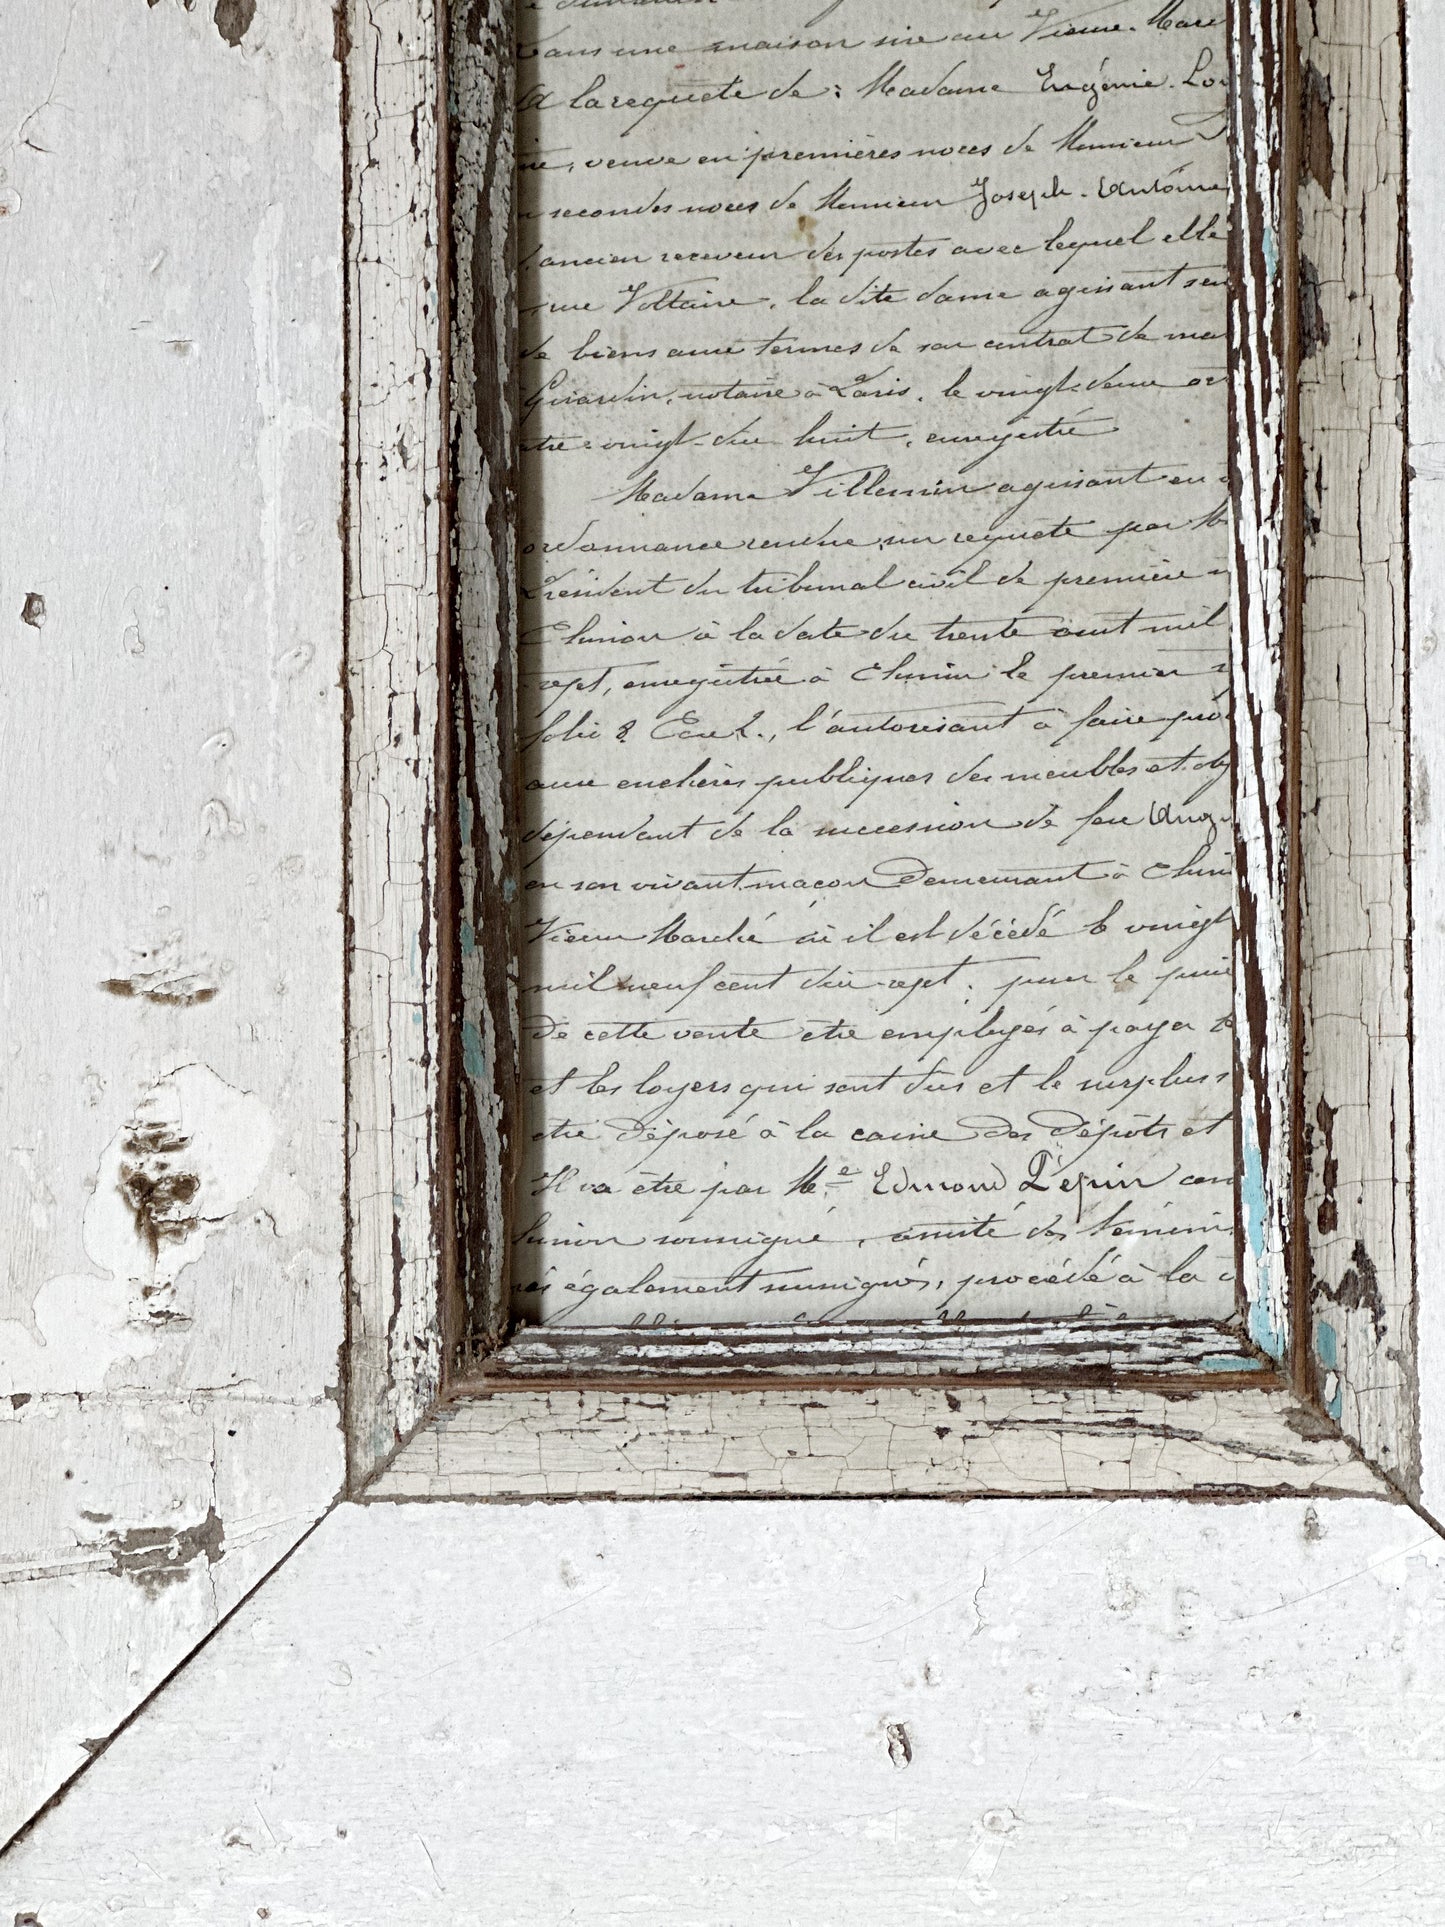 Dans une maison sise au Vieux-Marc
A la requête de : Madame Eugénie-Lou
ne, veuve en premières noces de Monsieur
n secondes noces de Monsieur Joseph-Antoine
ancien receveur des postes avec lequel elle
rue Voltaire, la dite dame agissant seu
de biens aux termes de son contrat de mar
Girardin, notaire à Paris, le vingt-deux oc
tre-vingt-dix huit, enregistré
Madame Villemin agissant en
ordonnance rendue sur requête par M
Président du tribunal civil de première
Chinon à la date du trente août mil
sept, enregistrée à Chinon le premier s
folio 8. Case 2., l'autorisant à faire pro
aux enchères publiques des meubles et obj
dépendant de la succession de feu Aug
en son vivant maçon demeurant à Chin
Vieux Marché où il est décédé le vingt
mil neuf cent dix-sept, pour le prix
de cette vente être employés à payer
et les loyers qui sont dus et le surplus
être déposé à la caisse des dépôts et
Il va être par Me Edmond Pépin com
hinon soussigné, assisté des témoins
és également soussignés, procédé à la